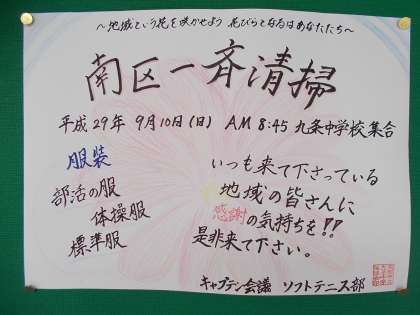 ～地域という花を咲かせよう 花びらとなるはあなたたち～
南区一斉清掃
平成29年 9月10日(日) AM 8:45 九条中学校集合
服装
部活の服
体操服
標準服
いつも来て下さっている
地域の皆さんに
感謝の気持ちを!!
是非来て下さい。
キャプテン会議 ソフトテニス部